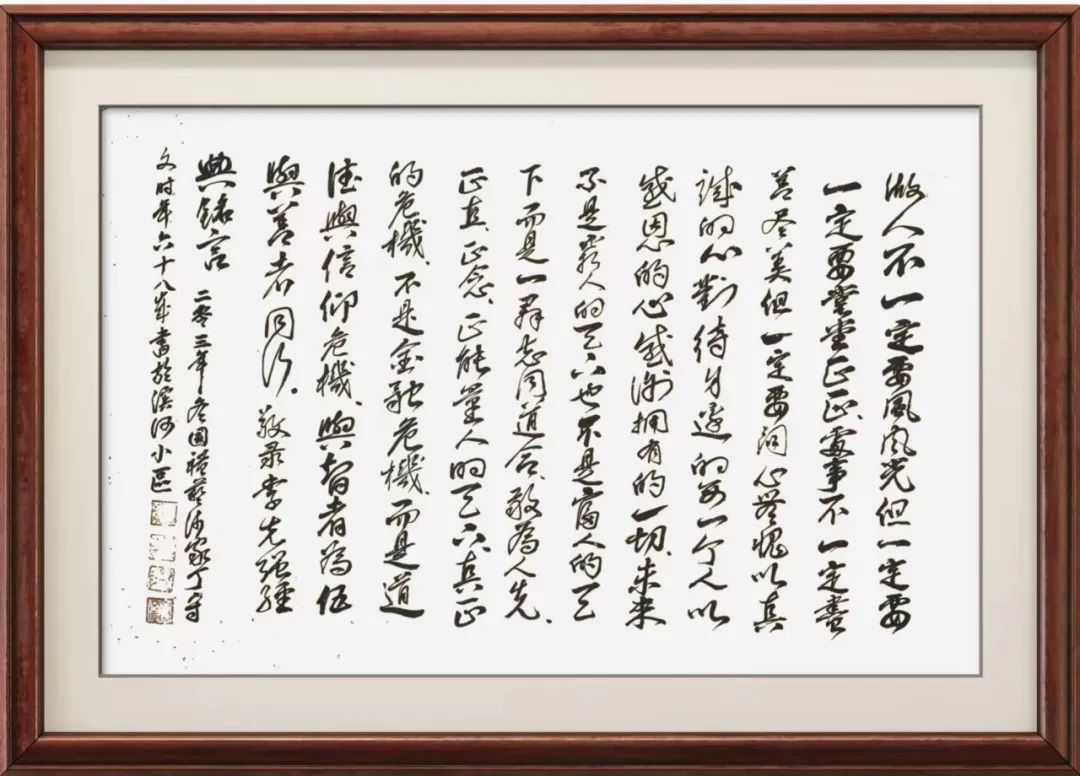 做人不一定要風風光光但一定要
一定要堂堂正正、處事不一定盡
善盡美但一定要問心無愧以真
誠的心對待身邊的每一个人以
感恩的心感謝拥有的一切、未来
不是窮人的天下也不是富人的天
下而是一群志同道合、敢為人先、
正直、正念、正能量人的天下、真正
的危機、不是金融危機、而是道
德與信仰危機、與智者為伍
與善者同行、敬录李先强經
典銘言
二零二三年冬國禮藝術家丁守
文时年六十八歲書於濱河小區